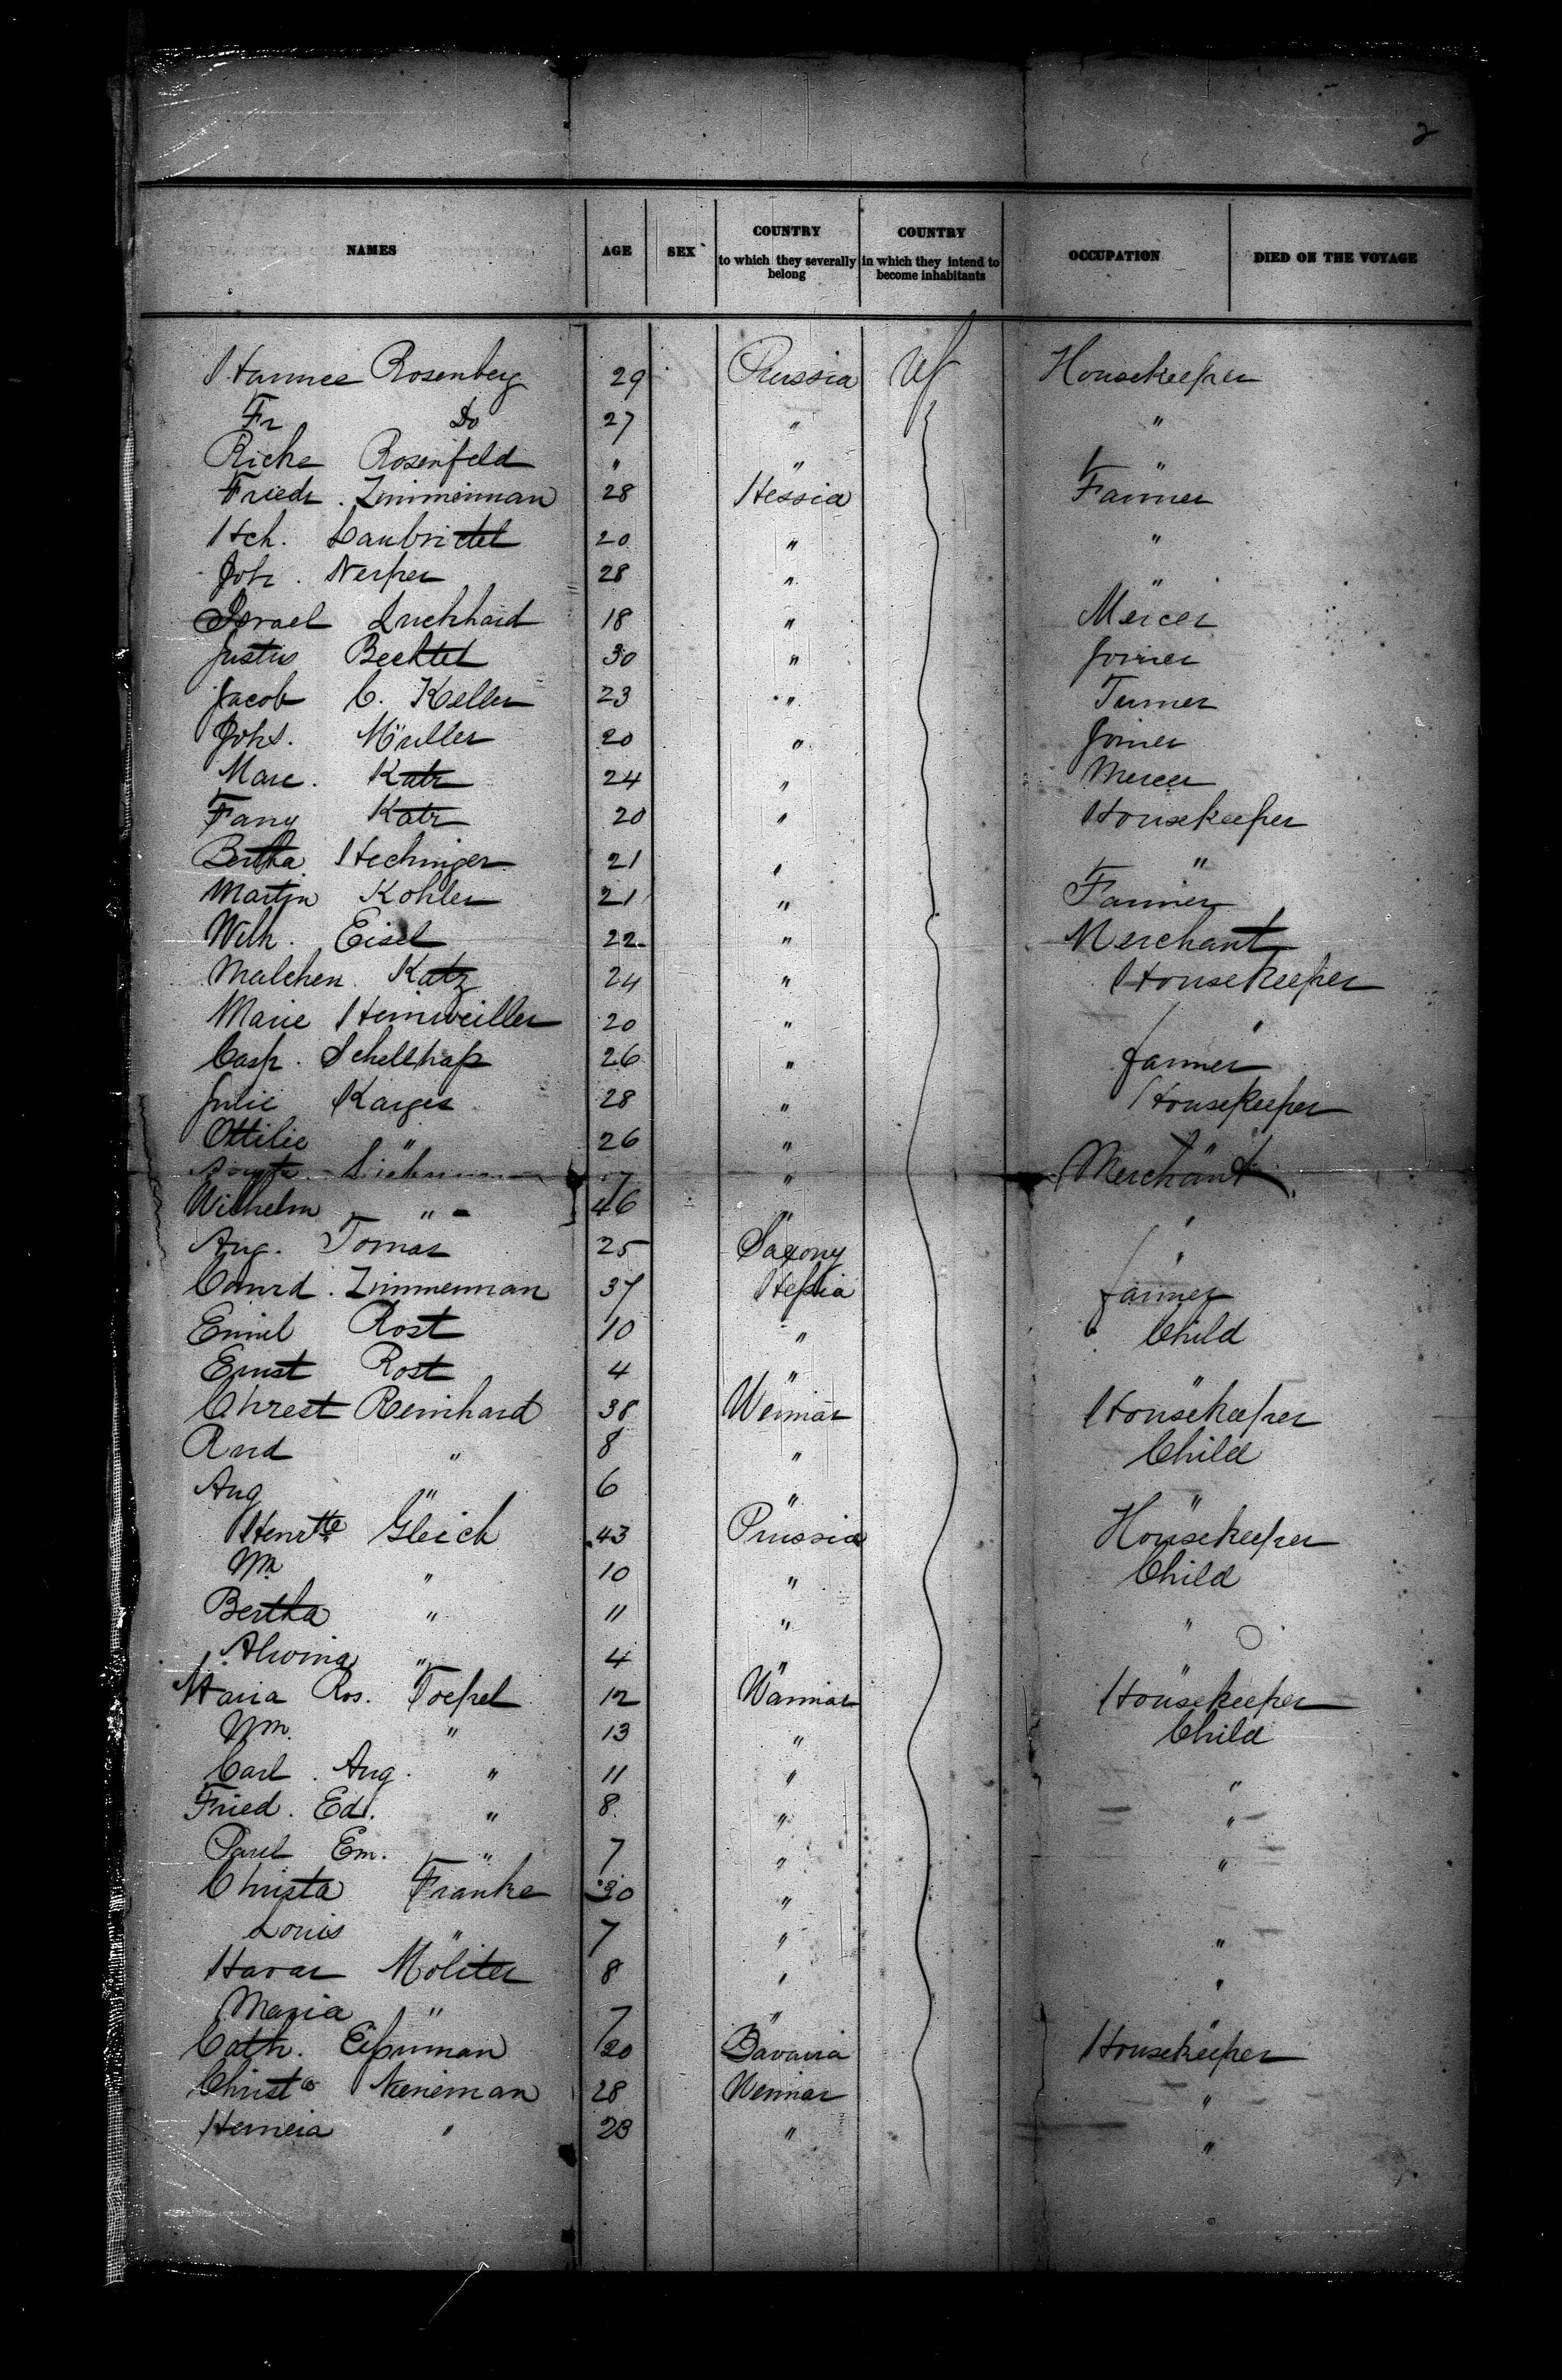 2
NAMES AGE SEX COUNTRY to which they severally belong COUNTRY in which they intend to become inhabitants OCCUPATION DIED ON THE VOYAGE
Hannes Rosenberg 29 Prussia US Housekeeper
Fr Do 27 " "
Ricke Rosenfeld " " "
Friedr. Zimmerman 28 Hessia Farmer
Hch. Laubrictel 20 " "
Joh. Nesper 28 " "
Israel Luckhard 18 " Mercer
Justus Becktel 30 " Joiner
Jacob C. Keller 23 " Turner
Johs. Müller 20 " Joiner
Marc. Katz 24 " Mercer
Fany Katz 20 " Housekeeper
Bertha Hechinger 21 " "
Martin Kohler 21 " Farmer
Wilh. Eisel 22 " Merchant
Malchen Katz 24 " Housekeeper
Marie Heimweiller 20 " "
Casp. Schellhas 26 " farmer
Julie Karges 28 " Housekeeper
Ottilie " 26 " "
" Merchant
Wilhelm " 46 " "
Aug. Tomas 25 Saxony "
Conrd. Zimmerman 37 Hessia farmer
Emil Rost 10 " Child
Ernst Rost 4 " "
Chrest Reinhard 38 Weimar Housekeeper
Rud " 8 " Child
Aug " 6 " "
Henrtte Gleich 43 Prussia Housekeeper
Wm " 10 " Child
Bertha " 11 " "
Alwina " 4 "
Maria Ros. Toepel 12 Wamiar Housekeeper
Wm. " 13 " Child
Carl. Aug. " 11 " "
Fried. Ed. " 8 " "
Paul Em. " 7 " "
Christa Franke 30 "
Louis " 7 " "
Moliter 8 " "
Maria " 7 " "
Cath. Eissman 20 Bavaria Housekeeper
Christa Neneman 28 Weimar "
" 23 " "